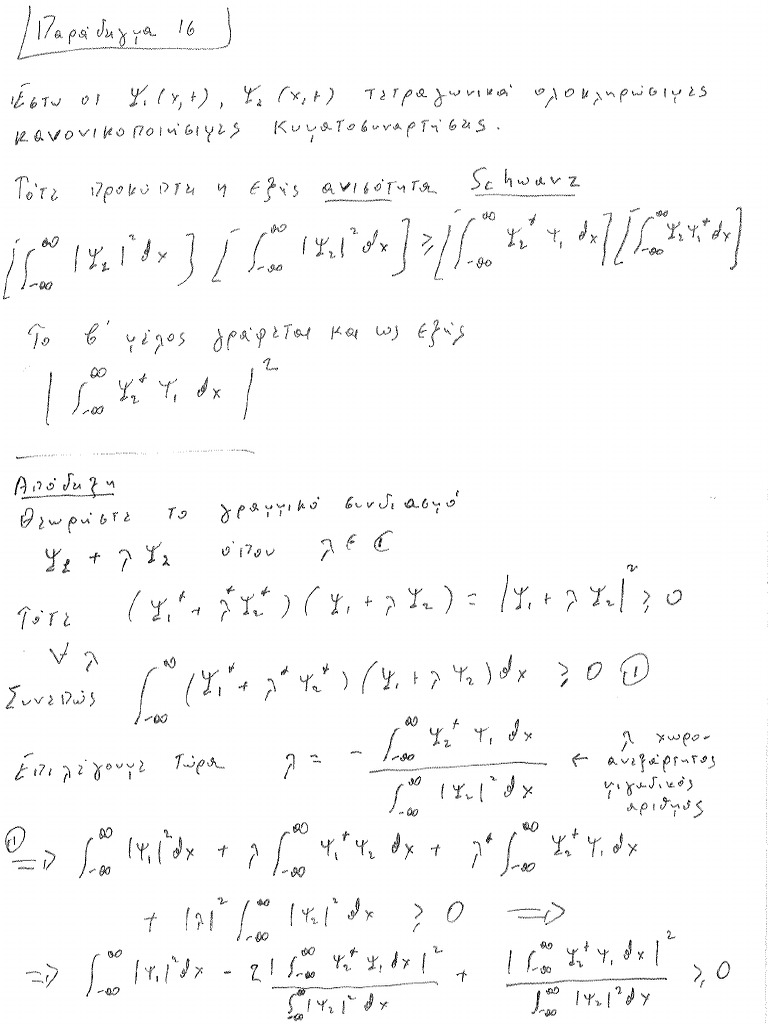 Παράδειγμα 16
Έστω οι Ψ₁(x,t), Ψ₂(x,t) τετραγωνικά ολοκληρώσιμες
κανονικοποιήσιμες κυματοσυναρτήσεις.
Τότε προκύπτει η εξής ανισότητα Schwarz
[∫_{-∞}^{∞} |Ψ₁|² dx] [∫_{-∞}^{∞} |Ψ₂|² dx] ≥ [∫_{-∞}^{∞} Ψ₂* Ψ₁ dx] [∫_{-∞}^{∞} Ψ₂ Ψ₁* dx]
Το β' μέλος γράφεται και ως εξής
|∫_{-∞}^{∞} Ψ₂* Ψ₁ dx|²
Απόδειξη
Θεωρήστε το γραμμικό συνδιασμό
Ψ₁ + λΨ₂ όπου λ ∈ ℂ
Τότε (Ψ₁* + λ*Ψ₂*)(Ψ₁ + λΨ₂) = |Ψ₁ + λΨ₂|² ≥ 0
∀ λ
Συνεπώς ∫_{-∞}^{∞} (Ψ₁* + λ*Ψ₂*)(Ψ₁ + λΨ₂) dx ≥ 0 ①
Επιλέγουμε τώρα λ = - ∫_{-∞}^{∞} Ψ₂* Ψ₁ dx / ∫_{-∞}^{∞} |Ψ₂|² dx ← λ χωρο-
ανεξάρτητος
μιγαδικός
αριθμός
① ⟹ ∫_{-∞}^{∞} |Ψ₁|² dx + λ ∫_{-∞}^{∞} Ψ₁* Ψ₂ dx + λ* ∫_{-∞}^{∞} Ψ₂* Ψ₁ dx
+ |λ|² ∫_{-∞}^{∞} |Ψ₂|² dx ≥ 0 ⟹
⟹ ∫_{-∞}^{∞} |Ψ₁|² dx - 2 |∫_{-∞}^{∞} Ψ₂* Ψ₁ dx|² / ∫_{-∞}^{∞} |Ψ₂|² dx + |∫_{-∞}^{∞} Ψ₂* Ψ₁ dx|² / ∫_{-∞}^{∞} |Ψ₂|² dx ≥ 0